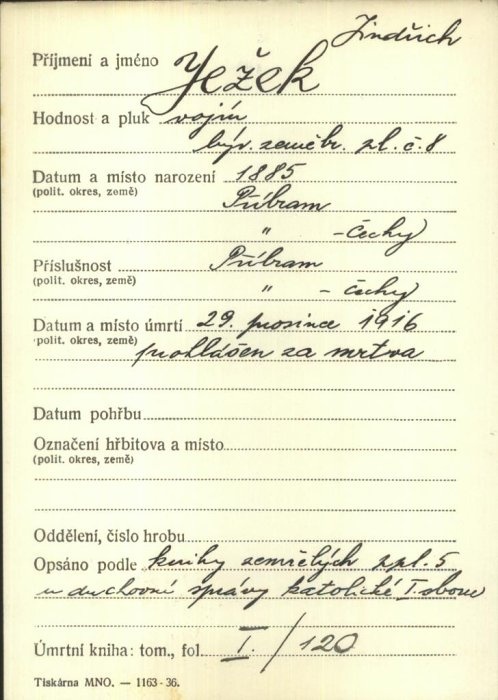 Jindřich
Příjmení a jméno Ježek
Hodnost a pluk vojín
býv. zeměbr. pl. č. 8
Datum a místo narození 1885
(polit. okres, země) Příbram
" - čechy
Příslušnost Příbram
(polit. okres, země) " - čechy
Datum a místo úmrtí 29. prosince 1916
polit. okres, země) prohlášen za mrtva
Datum pohřbu
Označení hřbitova a místo
(polit. okres, země)
Oddělení, číslo hrobu
Opsáno podle knihy zemřelých zpl. 5
u duchovní správy katolické I. sboru
Úmrtní kniha: tom., fol. I. / 120
Tiskárna MNO. — 1163 - 36.